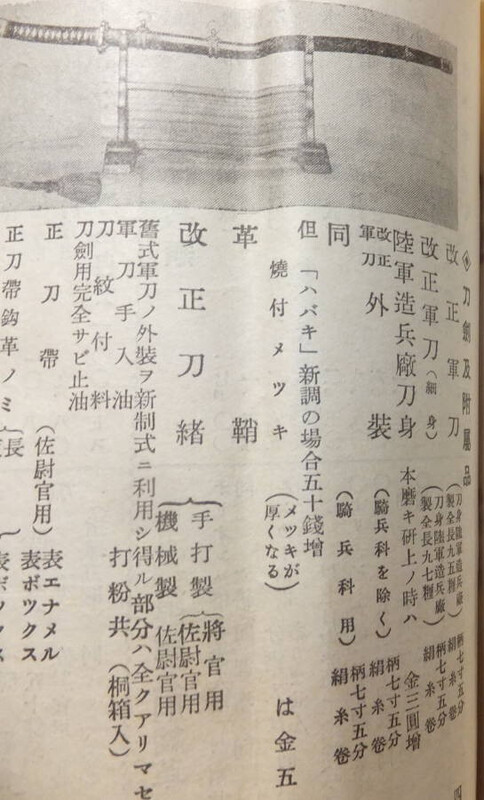 ◉刀劍及附屬品
改正軍刀 (刀身陸軍造兵廠製全長九五糎) 柄七寸五分 絹糸卷
改正軍刀(細身) (刀身陸軍造兵廠製全長九七糎) 柄七寸五分 絹糸卷
陸軍造兵廠刀身 本磨キ研上ノ時ハ 金三圓增
改正軍刀外裝 (騎兵科を除く) 柄七寸五分 絹糸卷
同 (騎兵科用) 柄七寸五分 絹糸卷
但「ハバキ」新調の場合五十錢增
燒付メツキ (メツキが厚くなる) は金五
革鞘
改正刀緖 手打製 將官用 佐尉官用 機械製 佐尉官用
舊式軍刀ノ外裝ヲ新制式ニ利用シ得ル部分ハ全クアリマセ
軍刀手入油 打粉共(桐箱入)
刀紋付料
刀劍用完全サビ止油
正刀帶(佐尉官用) 表エナメル 表ボツクス
正刀帶鈎革ノミ 長
四